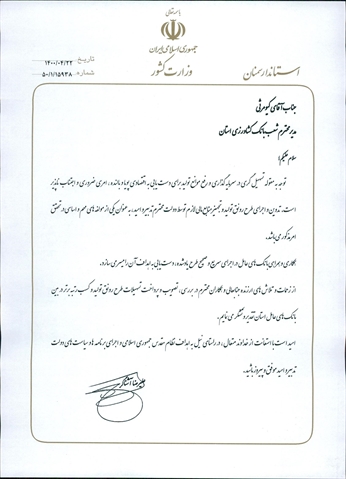 باسمه تعالی
جمهوری اسلامی ایران
وزارت کشور
استاندار سمنان
تاریخ: ۱۴۰۰/۰۴/۲۲
شماره: ۵۰/۱/۱۵۹۳۸
جناب آقای کیومرثی
مدیر محترم شعب بانک کشاورزی استان
سلام علیکم؛
توجه به مقوله تسهیل گری در سرمایه گذاری و رفع موانع تولید برای دست یابی به اقتصادی پویا و بالنده، امری ضروری و اجتناب ناپذیر
است. تدوین و اجرای طرح رونق تولید و تجهیز منابع مالی لازم توسط دولت محترم تدبیر و امید، به عنوان یکی از مولفه های مهم و اساسی در تحقق
امر مذکور می باشد.
همکاری و همراهی بانک های عامل در اجرای سریع و صحیح طرح یاد شده، دست یابی به اهداف آن را میسر می سازد.
از زحمات و تلاش های ارزنده جنابعالی و همکاران محترم در بررسی، تصویب و پرداخت تسهیلات طرح رونق تولید و کسب رتبه برتر در بین
بانک های عامل استان تقدیر و تشکر می نمایم.
امید است با استعانت از خداوند متعال، در راستای نیل به اهداف نظام مقدس جمهوری اسلامی و اجرای برنامه ها و سیاست های دولت
تدبیر و امید موفق و پیروز باشید.
علیرضا آشناگر